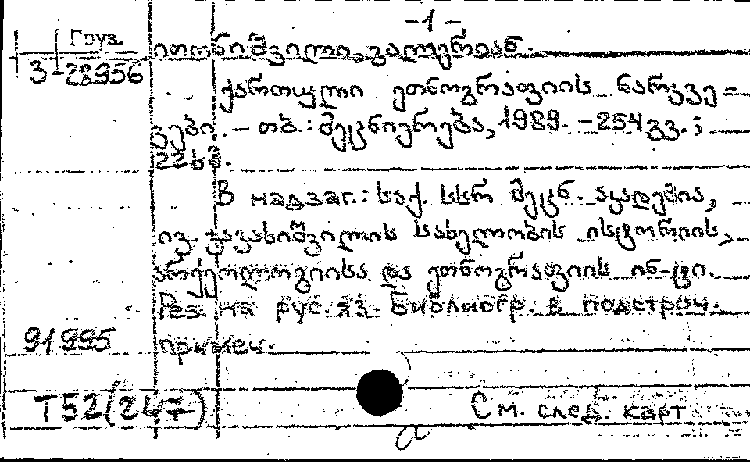 -1-
Груз.
3-28956
ითონიშვილი, ვალერიან.
ქართული ეთნოგრაფიის ნარკვე=
ვები. – თბ.: მეცნიერება, 1989. – 254 გვ.;
22 სმ.
В надзаг.: საქ. სსრ მეცნ. აკადემია,
ივ. ჯავახიშვილის სახელობის ისტორიის,
არქეოლოგიისა და ეთნოგრაფიის ინ-ტი.
Рез на рус. яз. Библиогр. в подстроч.
91995 примеч.
Т52(247)
См. след. карт